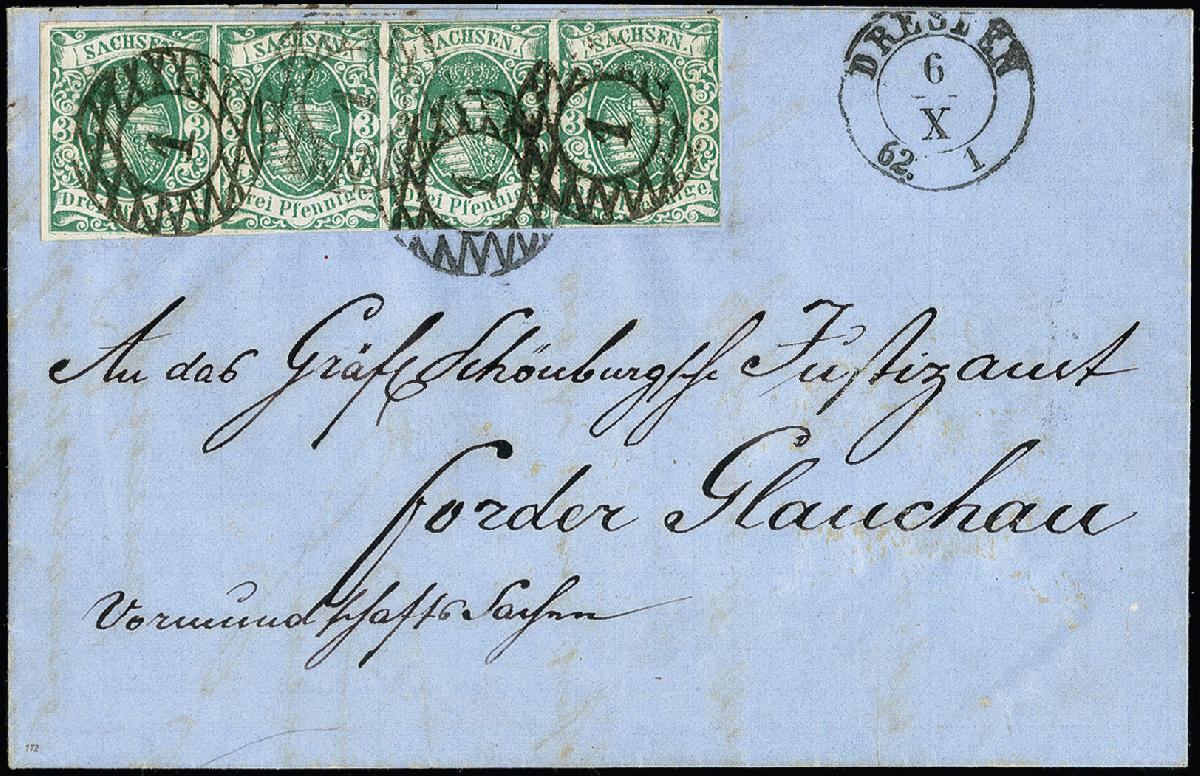 SACHSEN. SACHSEN. SACHSEN. SACHSEN.
3 3 3 3 3 3 3 3
1 1 1 1
Drei Pfennige. Drei Pfennige.
DRESDEN
6
X
62. 1
An das Gräfl Schönburgsche Justizamt
forder Glauchau
Vormundschafts Sachen
112